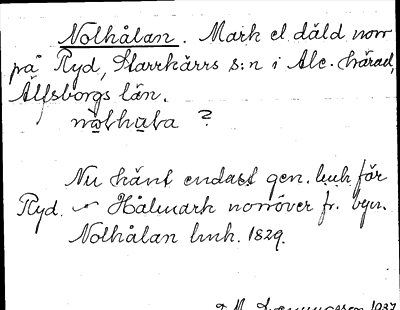 Nolhålan. Mark el. däld norr
på Ryd, Starrkärrs s:n i Ale. härad,
Älfsborgs län.
nơlhala ?
Nu känt endast gen. lmh för
Ryd. Hålmark norröver fr. byn.
Nolhålan lmh. 1829.
1937